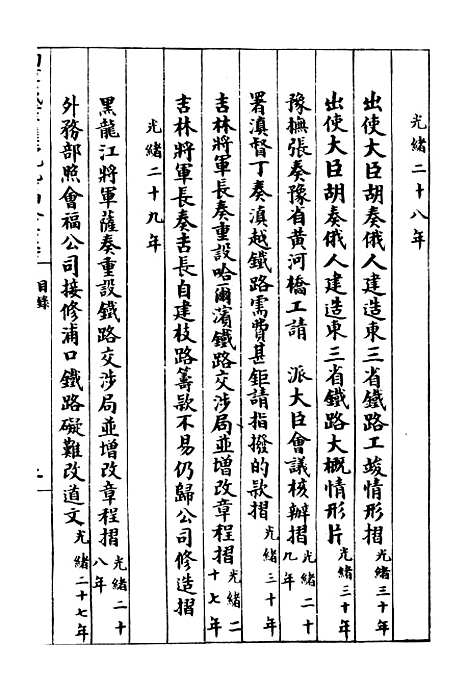 光緒二十八年
出使大臣胡奏俄人建造東三省鐵路工竣情形摺光緒三十年
出使大臣胡奏俄人建造東三省鐵路大概情形片光緒三十年
豫撫張奏豫省黃河橋工請　派大臣會議核辦摺光緒二十九年
署滇督丁奏滇越鐵路需費甚鉅請指撥的款摺光緒三十年
吉林將軍長奏重設哈爾濱鐵路交涉局並增改章程摺光緒二十七年
吉林將軍長奏吉長自建枝路籌款不易仍歸公司修造摺
光緒二十九年
黑龍江將軍薩奏重設鐵路交涉局並增改章程摺光緒二十八年
外務部照會福公司接修浦口鐵路礙難改道文光緒二十七年
目錄